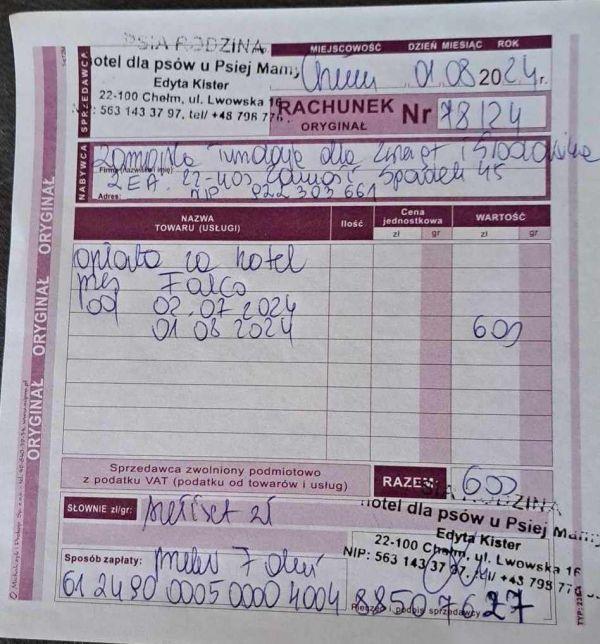 PSIA RODZINA
Hotel dla psów u Psiej Mamy
Edyta Kister
22-100 Chełm, ul. Lwowska 16
563 143 37 97, tel/ +48 798 77
SPRZEDAWCA
MIEJSCOWOŚĆ DZIEŃ MIESIĄC ROK
Chełm 01.08 2024 r.
RACHUNEK Nr 78/24
ORYGINAŁ
NABYWCA
Zamojska Fundacja dla Zwierząt i Środowiska
Firma (Nazwisko i imię)
ZEA. 22-400 Zamość Spadek 45
Adres: NIP 922 303 661
NAZWA TOWARU (USŁUGI) Ilość Cena jednostkowa WARTOŚĆ
zł gr zł gr
opłata za hotel
pies Falco
od 02.07.2024
01 08 2024 600
Sprzedawca zwolniony podmiotowo
z podatku VAT (podatku od towarów i usług)
RAZEM 600
SŁOWNIE zł/gr: sześćset zł
PSIA RODZINA
Hotel dla psów u Psiej Mamy
Edyta Kister
22-100 Chełm, ul. Lwowska 16
NIP: 563 143 37 97, tel/ +48 798 77
Sposób zapłaty: przelew 7 dni
61 2490 0005 0000 4004 8850 7627
Pieczęć i podpis sprzedawcy
ORYGINAŁ ORYGINAŁ ORYGINAŁ